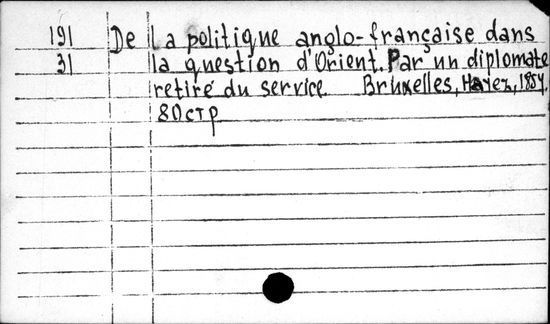 191 De la politique anglo-française dans
31 la question d'Orient. Par un diplomate
retiré du service. Bruxelles, Hayez, 1854.
80 стр